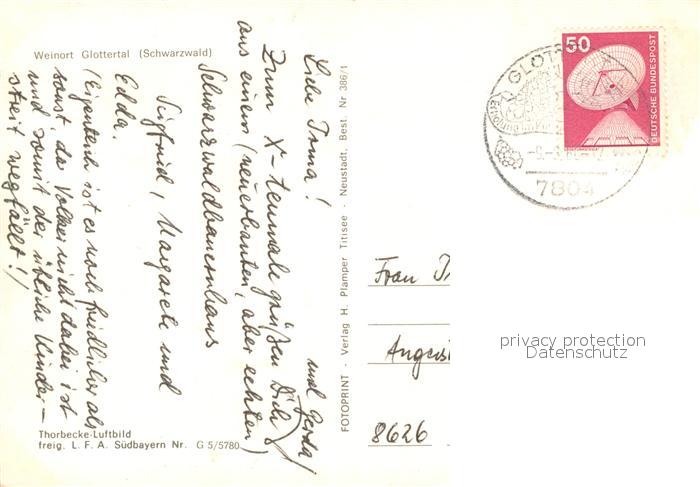 Weinort Glottertal (Schwarzwald)
Liebe Irma!
Zum X-tenmale grüßen Dich
(und Gerda)
aus einem (neuerbauten, aber echten)
Schwarzwaldbauernhaus
Siegfried, Margarete und
Edda.
(Eigentlich ist es noch friedlicher als
sonst, da Volker nicht dabei ist
und somit der übliche Kinder-
streit wegfällt!)
Thorbecke-Luftbild
freig. L. F. A. Südbayern Nr. G 5/5780
FOTOPRINT - Verlag H. Plamper Titisee - Neustadt, Best. Nr 386/1
50
DEUTSCHE BUNDESPOST
GLOT
7804
Frau
8626
privacy protection
Datenschutz